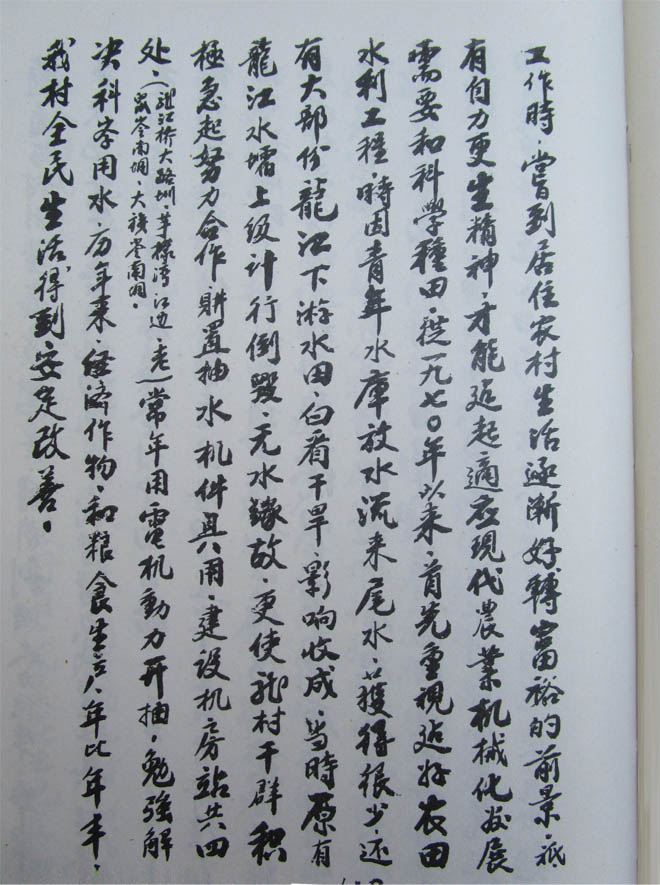 工作時，嘗到居住农村生活逐漸好轉富裕的前景，祗
有自力更生精神，才能追起適应現代農業机械化发展
需要和科學種田，從一九七〇年以来，首先重視造好农田
水利工程，時因青年水庫放水流来尾水，獲得很少，还
有大部份龍江下游水田，白看干旱，影响收成，当時原有
龍江水壩上级计行倒毁，无水缘故，更使我村干群积
極急起努力合作，購置抽水机件具用，建设机房站共四
处，（躍江桥大路圳，芋樣湾江边，
岺南垌，大埌岺南垌。）常年用電机動力开抽，勉强解
决科岺用水，历年来，经濟作物，和粮食生产，年比年丰，
我村全民生活得到安定改善。